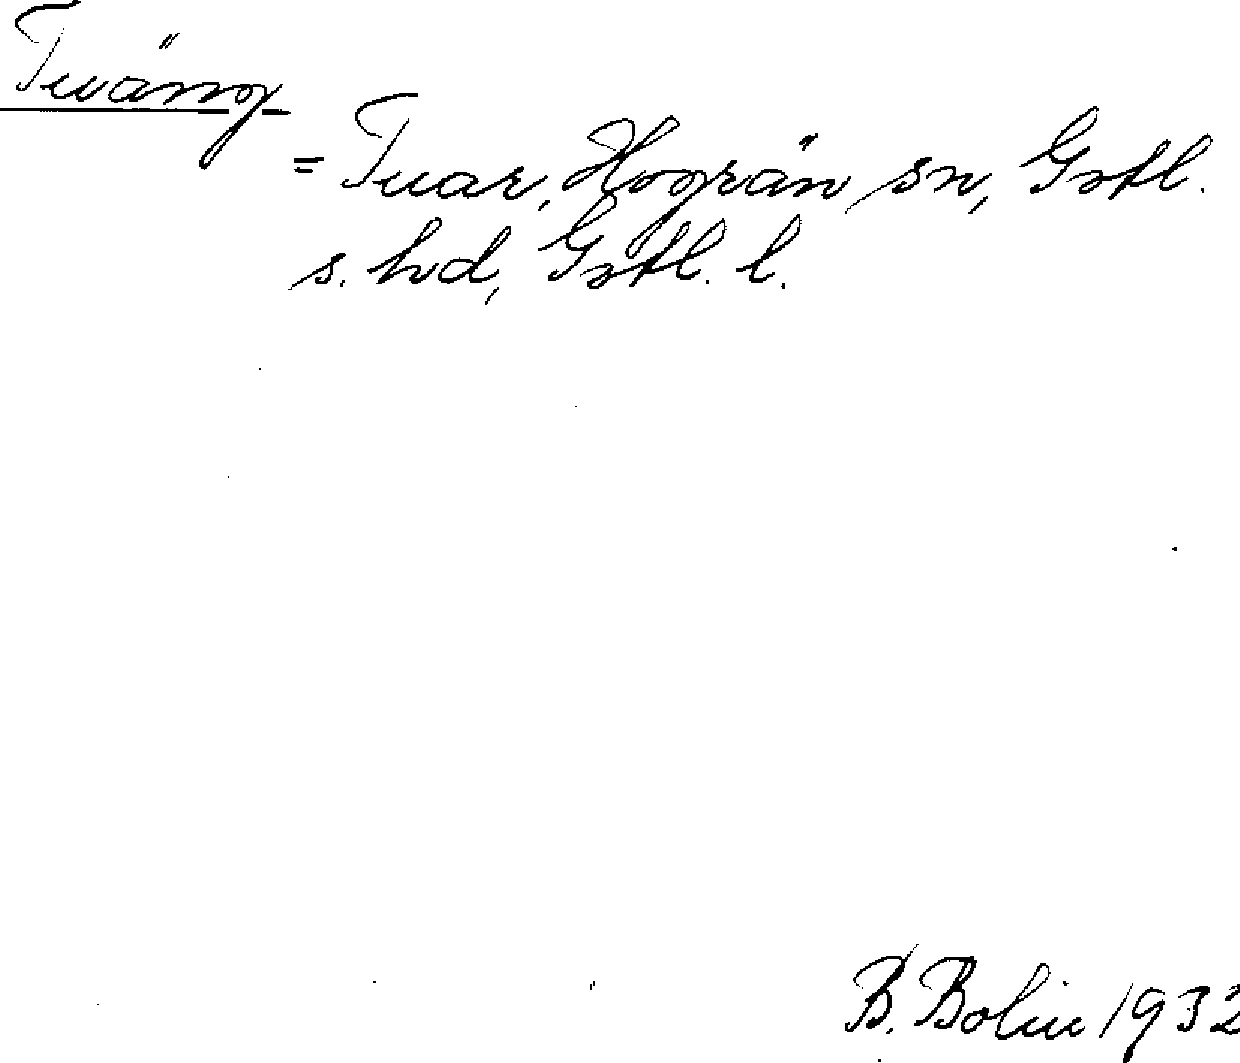 Tuäng
= Tuar, Hogrän sn, Gotl.
s. hd, Gotl. l.
B. Bolin 1932